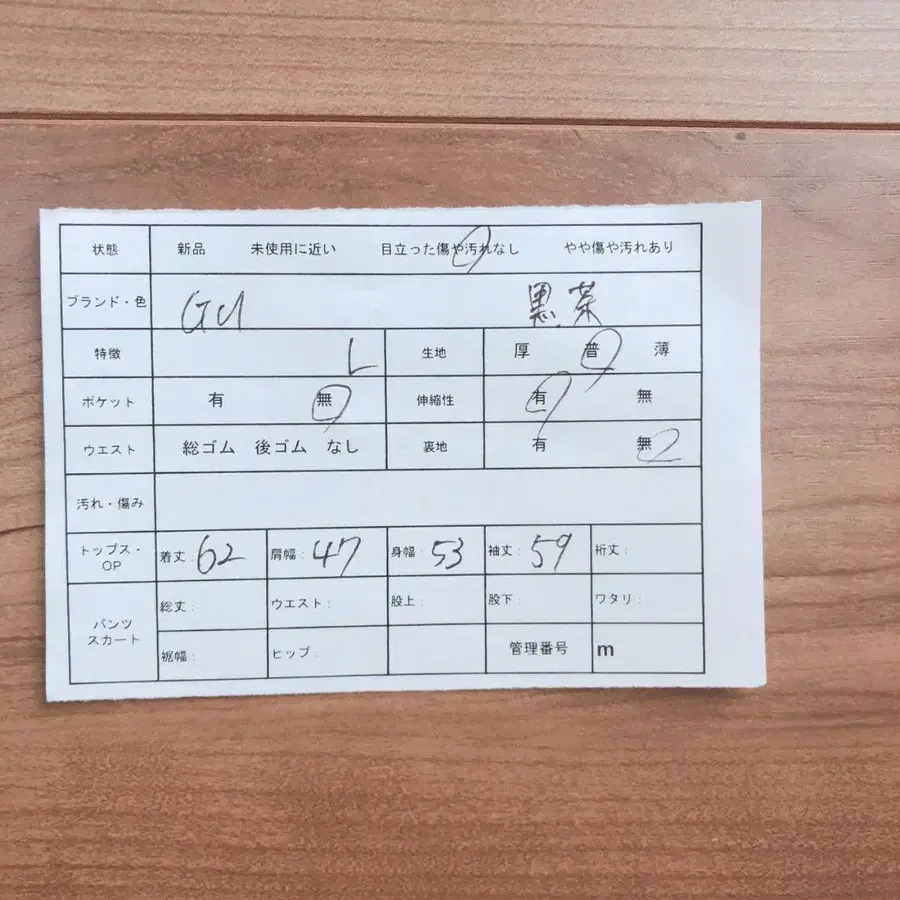 状態 新品 未使用に近い 目立った傷や汚れなし やや傷や汚れあり
ブランド・色 GU 黒 茶
特徴 L 生地 厚 普 薄
ポケット 有 無 伸縮性 有 無
ウエスト 総ゴム 後ゴム なし 裏地 有 無
汚れ・傷み
トップス・OP 着丈: 62 肩幅: 47 身幅: 53 袖丈: 59 裄丈:
パンツ スカート 総丈: ウエスト: 股上: 股下: ワタリ:
裾幅: ヒップ: 管理番号 m